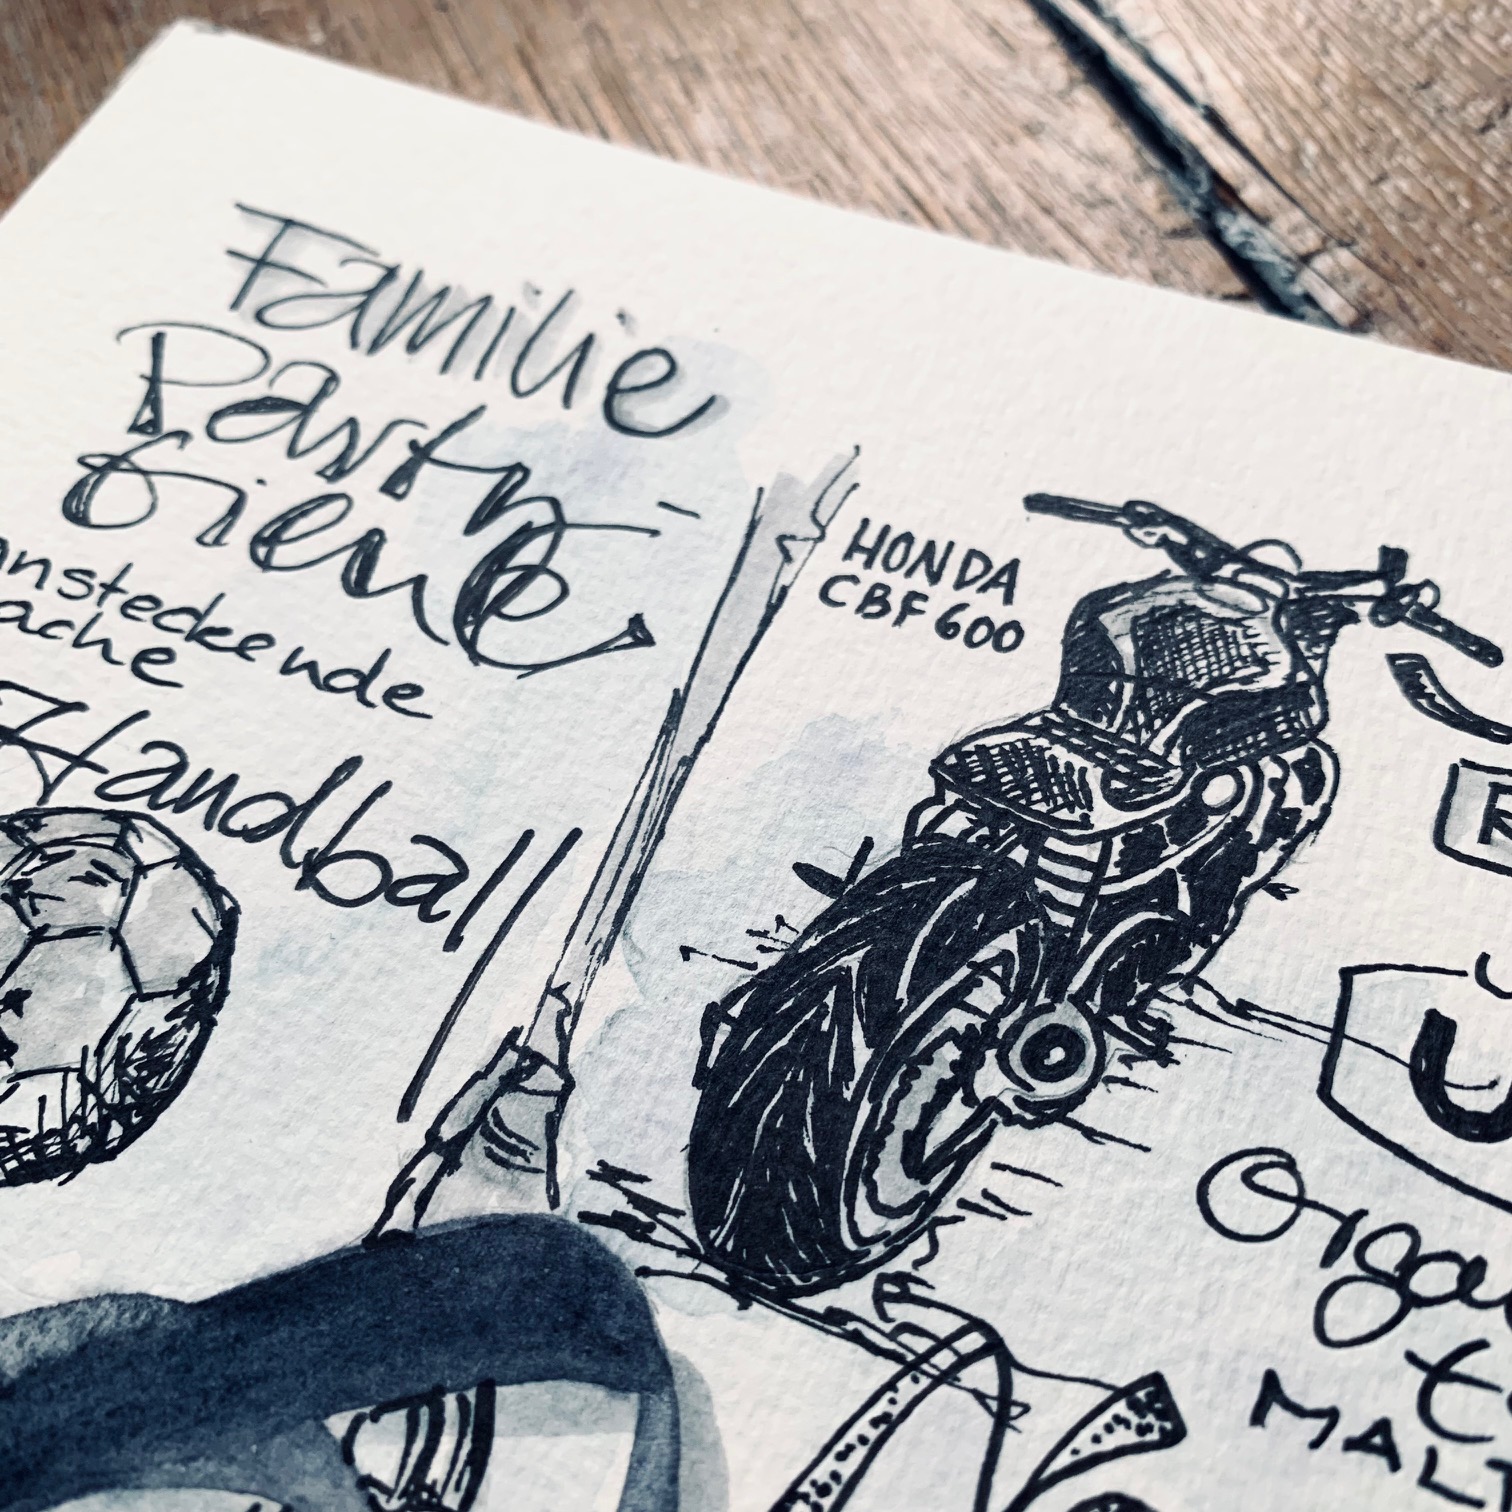 Familie
Party-
biene
ansteckende
ache
Handball
HONDA
CBF 600
R
U
Orga
MALT